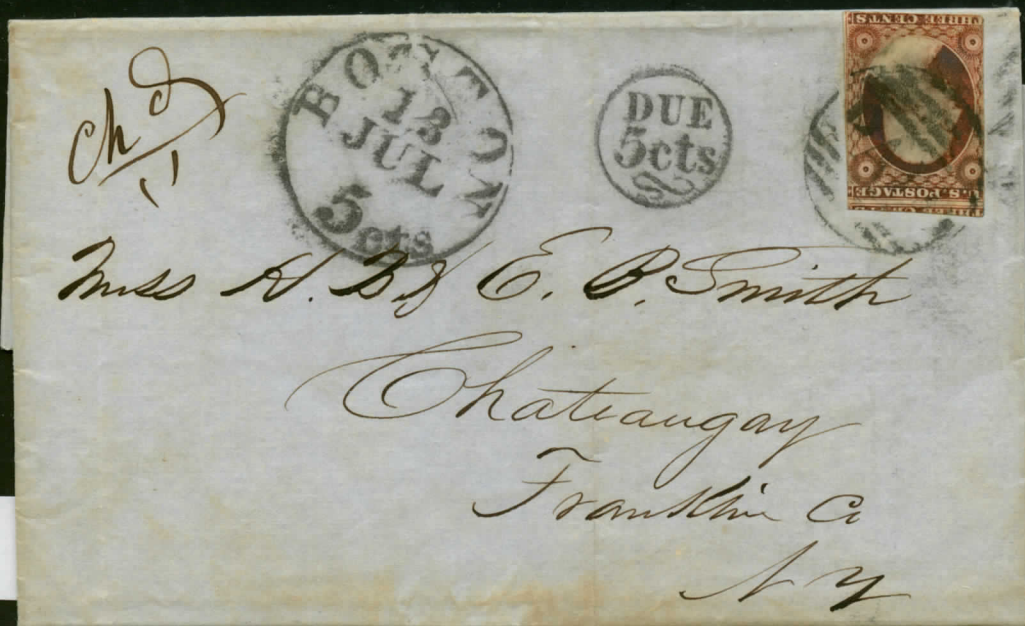 Chd
BOSTON
13
JUL
5cts
DUE
5cts
THREE CENTS
U.S. POSTAGE
THREE CENTS
Miss H. B & E. P. Smith
Chateaugay
Franklin Co
N Y